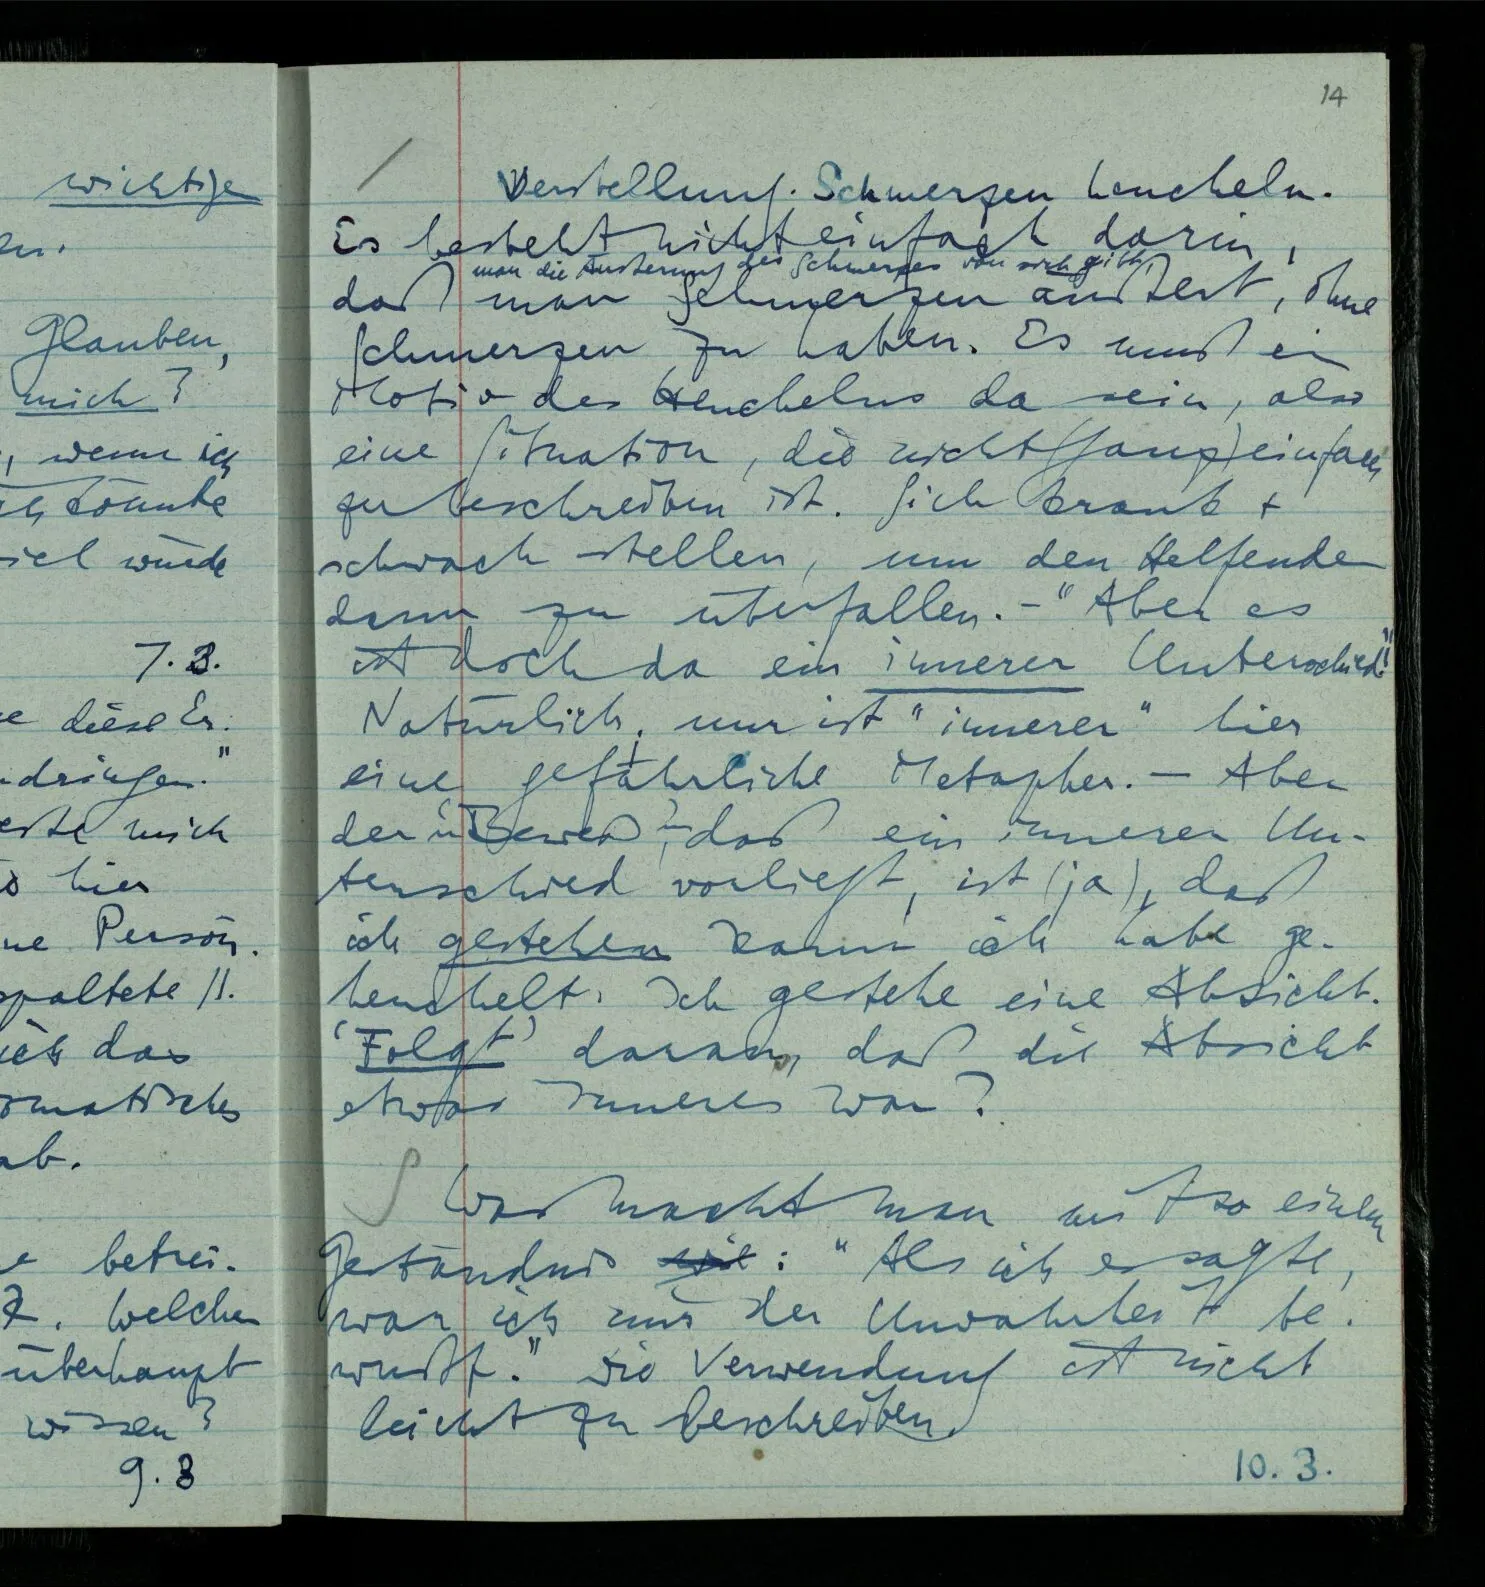 wichtige
en.
Glauben,
mich?
, wenn ich
ich könnte
viel würde
7.3.
diese Er-
ndringen."
mich
hier
ne Person.
spaltete //.
ich das
omatisches
ab.
betrei-
Welcher
überhaupt
wissen?
9.3
14
/ Verstellung. Schmerzen heucheln.
Es besteht nicht einfach darin,
man die Äusserung des Schmerzes von sich gibt,
daß man Schmerzen äußert, ohne
Schmerzen zu haben. Es muß ein
Motiv des Heuchelns da sein, also
eine Situation, die nicht (ganz) einfach
zu beschreiben ist. Sich krank +
schwach stellen, um den Helfenden
dann zu überfallen. – "Aber es
ist doch da ein innerer Unterschied!"
Natürlich; nur ist "innerer" hier
eine gefährliche Metapher. – Aber
der 'Beweis', daß ein innerer Un-
terschied vorliegt, ist (ja), daß
ich gestehen kann ich habe ge-
heuchelt. Ich gestehe eine Absicht.
'Folgt' daraus, daß die Absicht
etwas Inneres war?
∫ Was macht man mit so einem
Geständnis : "Als ich es sagte,
war ich mir der Unwahrheit be-
wußt." Die Verwendung ist nicht
leicht zu beschreiben.
10.3.